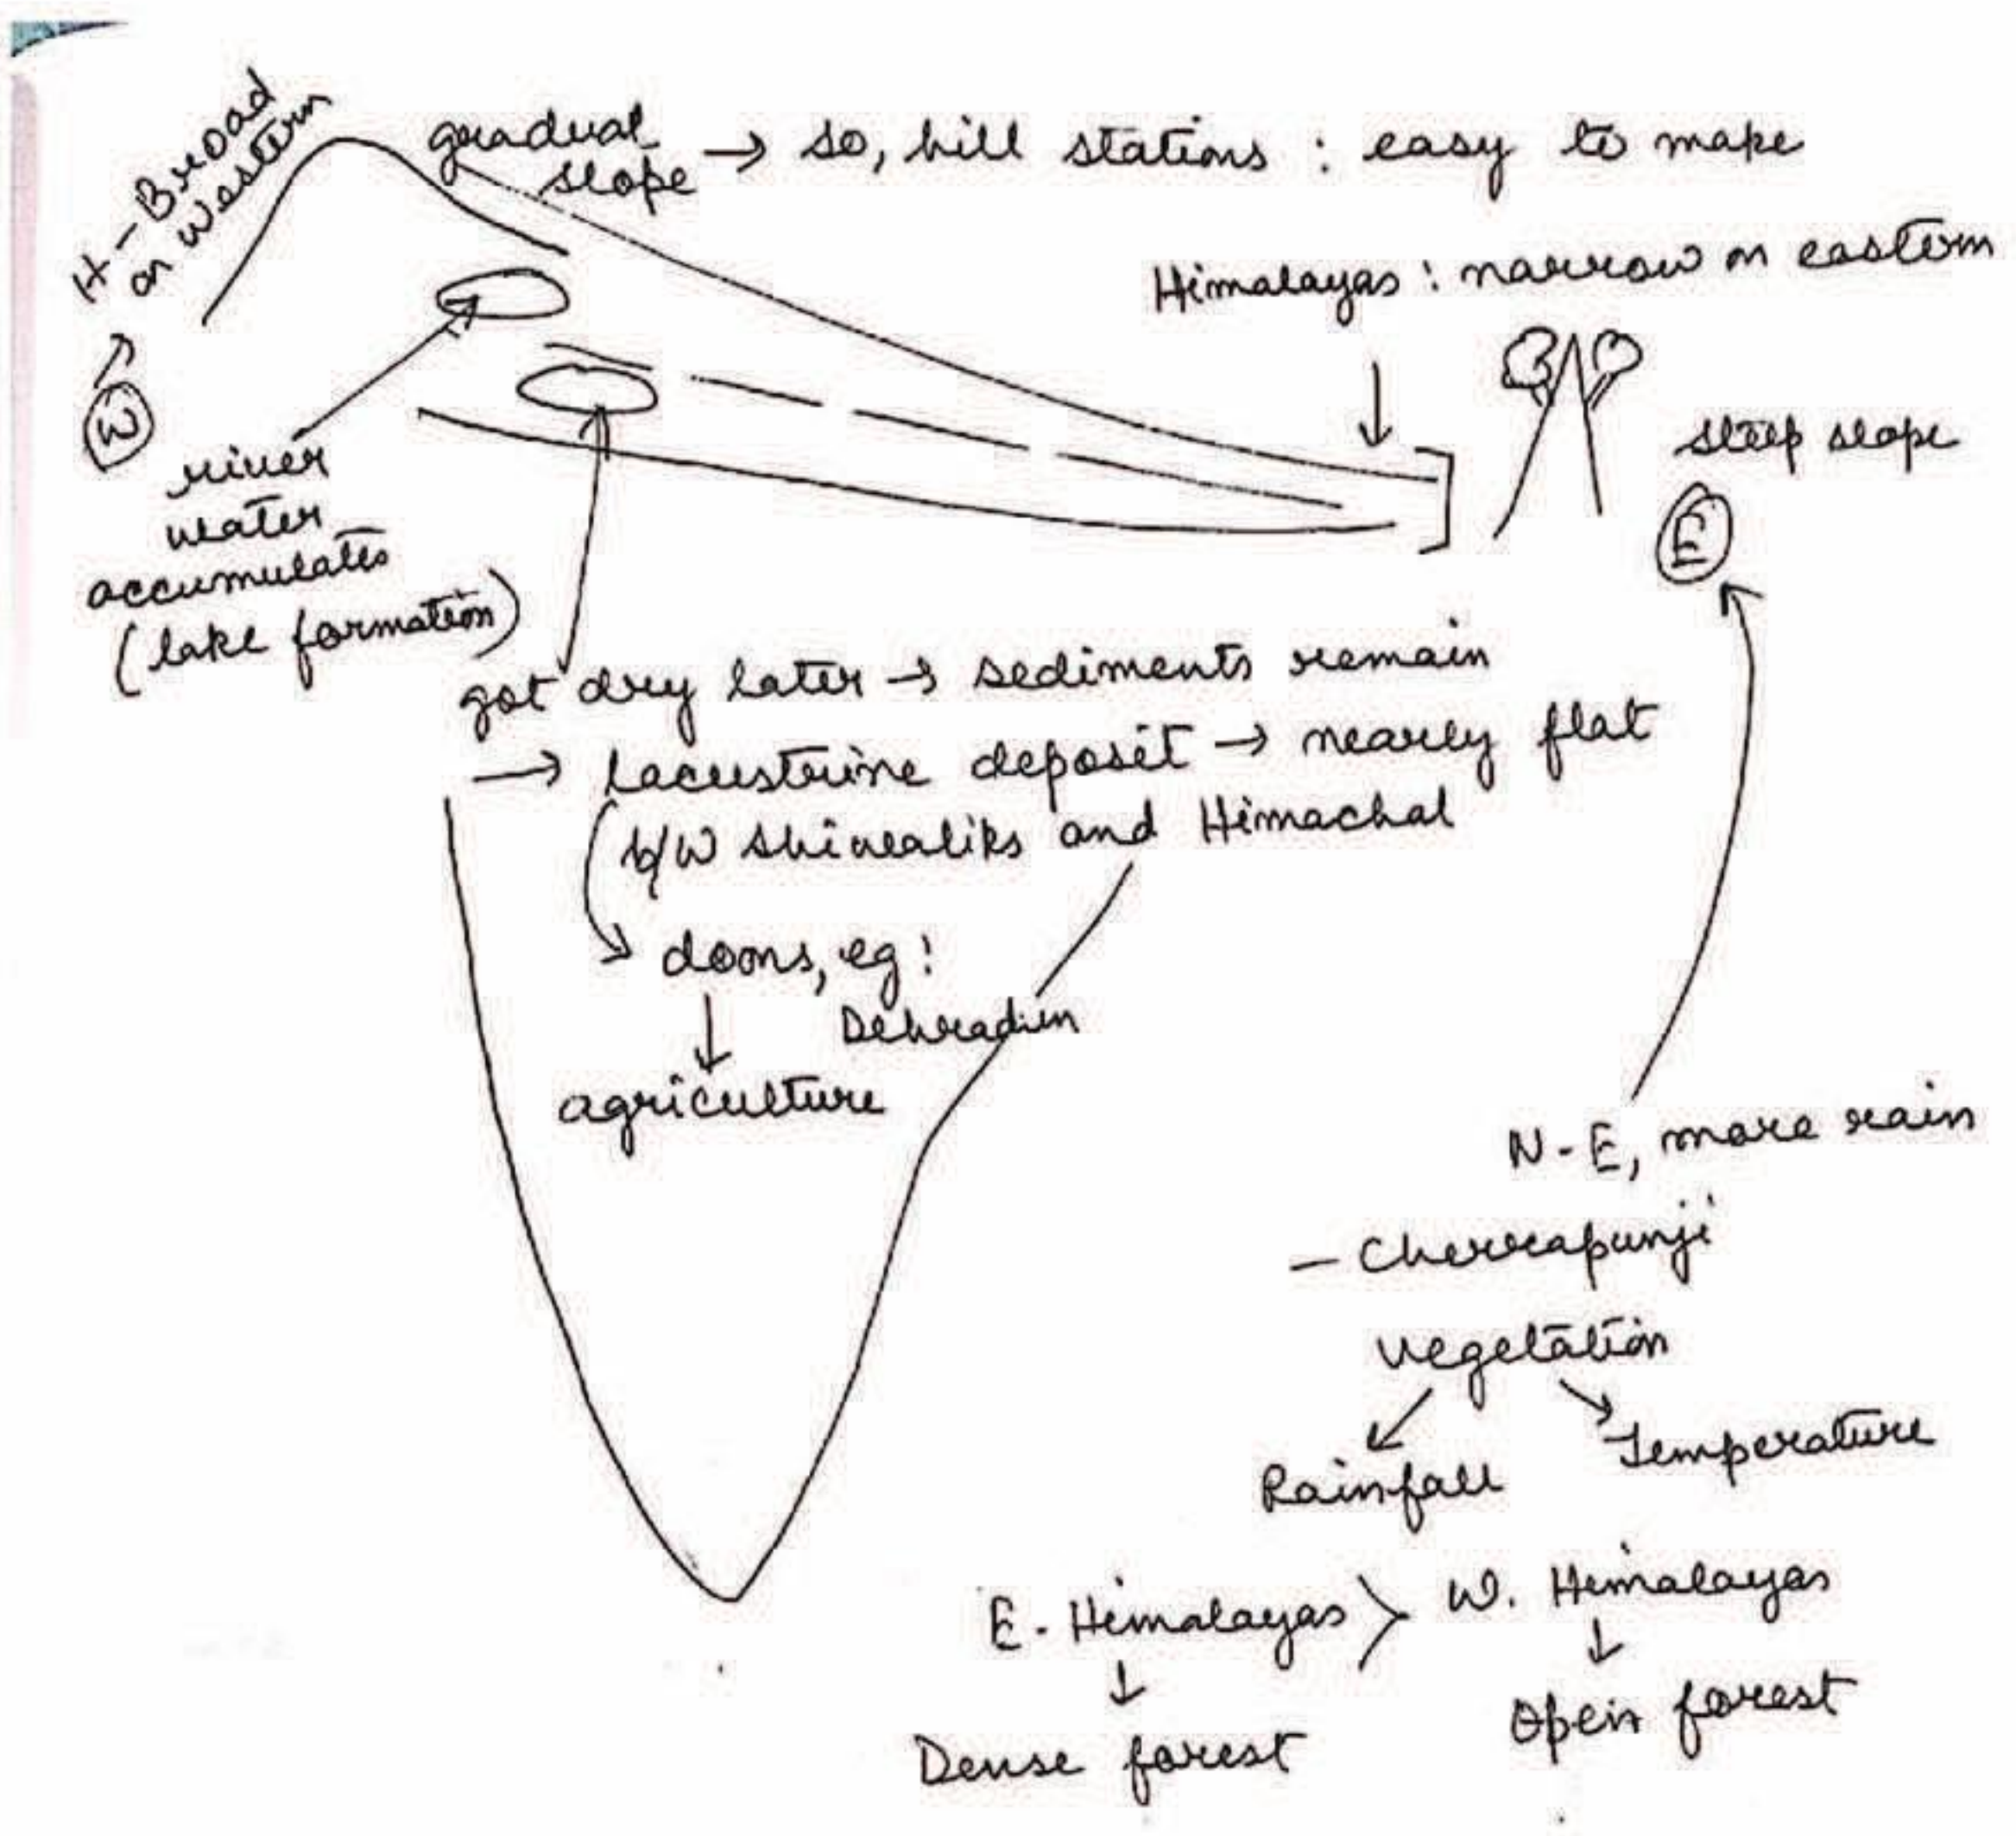 H - Broad
on Western
gradual
slope → so, hill stations : easy to make
Himalayas : narrow on eastern
W
steep slope
E
river
water
accumulates
(lake formation)
got dry later → sediments remain
→ Lacustrine deposit → nearly flat
b/w shiwaliks and Himachal
doons, eg:
Dehradun
agriculture
N-E, more rain
- Cherrapunji
vegetation
Rainfall
Temperature
E. Himalayas > W. Himalayas
Dense forest
Open forest